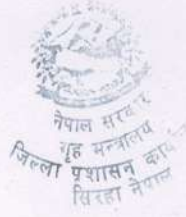 नेपाल सरकार
गृह मन्त्रालय
जिल्ला प्रशासन
सिरहा नेपाल